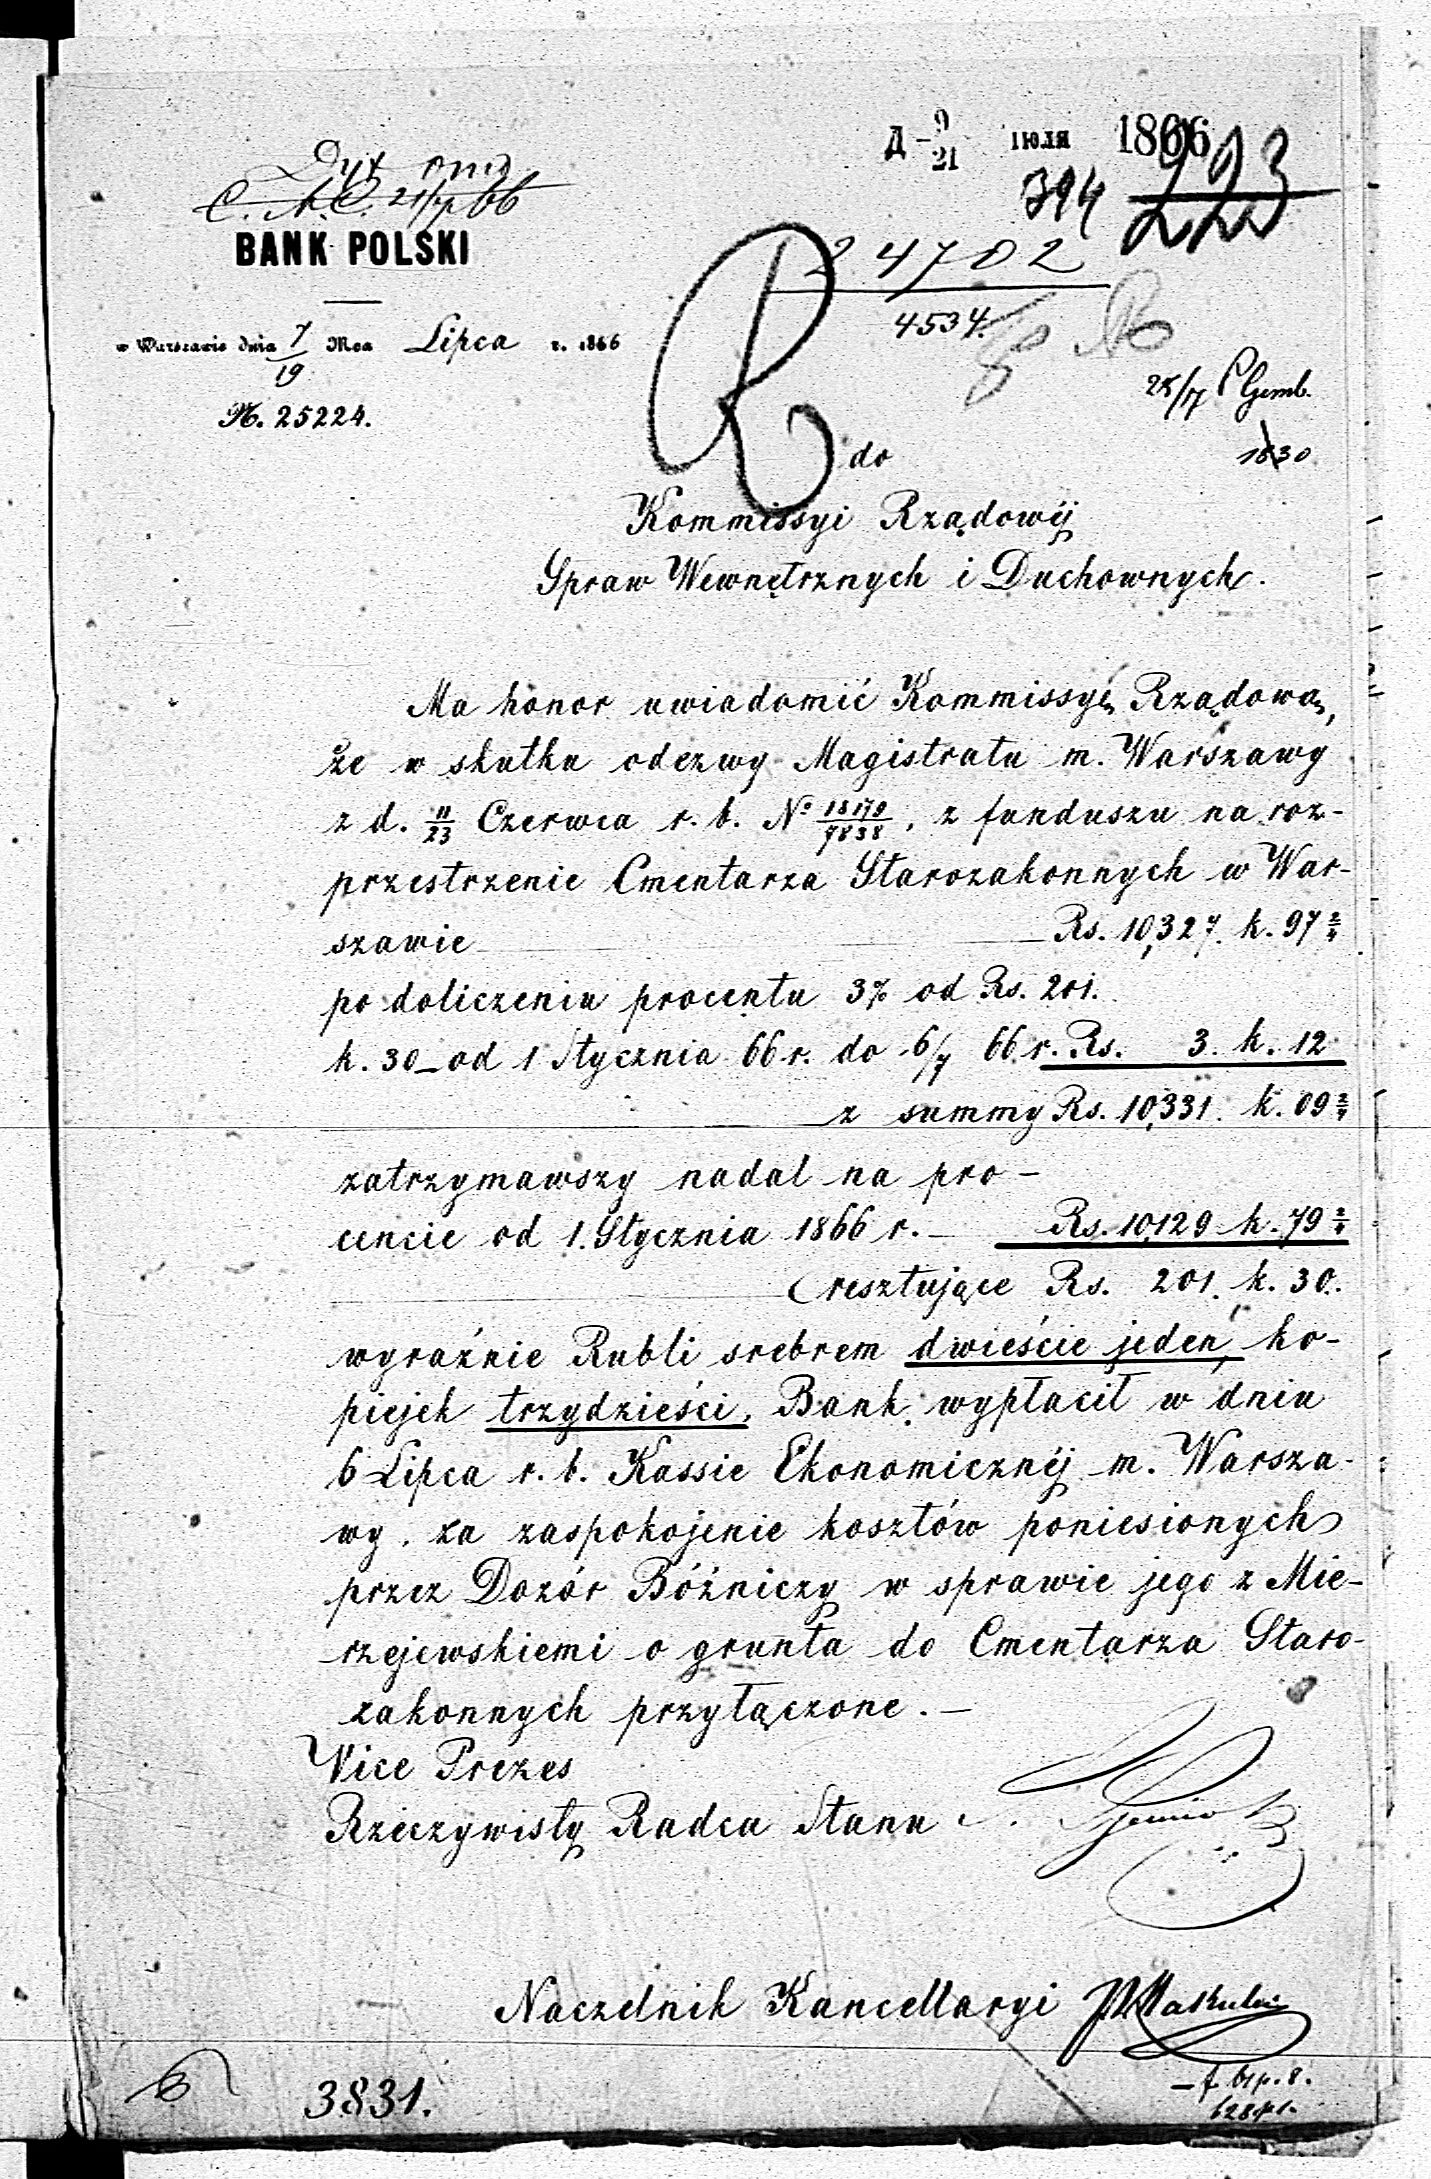 Д 9/21 ІЮЛЯ 1866
394
223
C. N. C. 21/7 66
BANK POLSKI
24702
4534.
w Warszawie dnia 7/19 Mca Lipca r. 1866
N. 25224.
28/7
1830
do
Kommissyi Rządowéj
Spraw Wewnętrznych i Duchownych.
Ma honor uwiadomić Kommissyę Rządową,
że w skutku odezwy Magistratu m. Warszawy
z d. 11/23 Czerwca r. b. No 18179/7838, z funduszu na roz-
przestrzenie Cmentarza Starozakonnych w War-
szawie Rs. 10,327. k. 97 2/4
po doliczeniu procentu 3% od Rs. 201.
k. 30 – od 1 Stycznia 66 r. do 6/7 66 r. Rs. 3. k. 12
z summy Rs. 10,331. k. 09 2/4
zatrzymawszy nadal na pro-
cencie od 1. Stycznia 1866 r. – Rs. 10,129 k. 79 2/4
resztujące Rs. 201. k. 30.
wyraźnie Rubli srebrem dwieście jeden, ko-
piejek trzydzieści, Bank wypłacił w dniu
6 Lipca r. b. Kassie Ekonomicznéj m. Warsza-
wy, za zaspokojenie kosztów poniesionych
przez Dozór Bóżniczy w sprawie jego z Mie-
rzejewskiemi o grunta do Cmentarza Staro-
zakonnych przyłączone. –
Vice Prezes
Rzeczywisty Radca Stanu
Naczelnik Kancellaryi
3831.